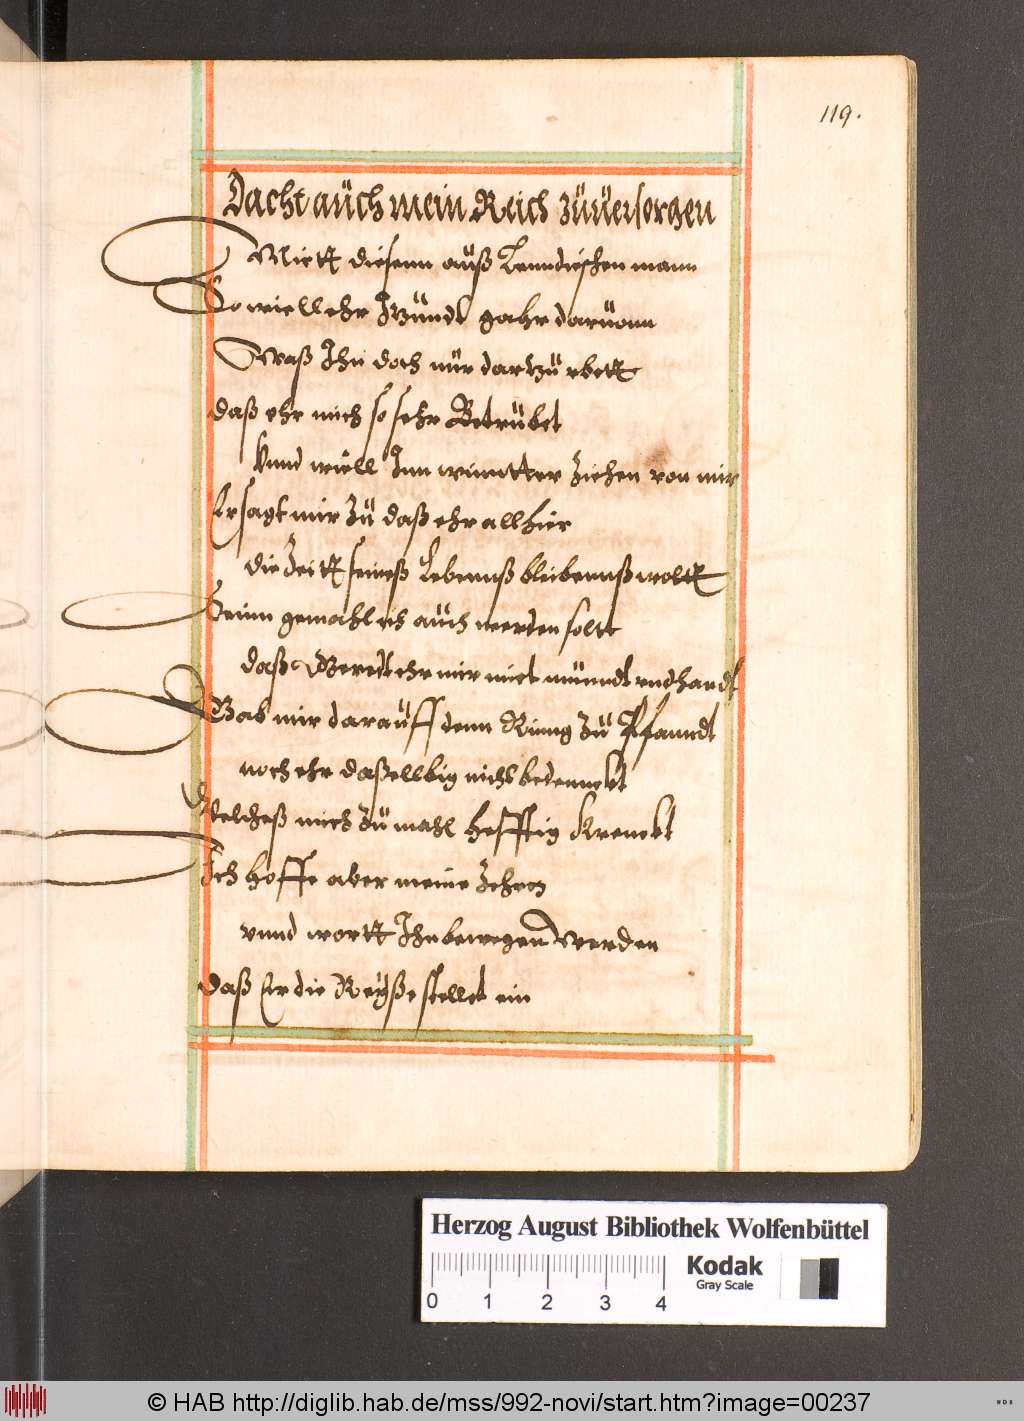 119.
Dacht aüch mein Reich züüersorgen
Mitt diesenn auß Lenndischen mann
So wiell ehr Itzündt gahr daruonn
Waß Ihn doch nür dartzü
daß ehr mich so sehr Betrübet
Vnnd wiell Inn winntter Ziehen von mir
Er sagt mir zü daß ehr allhier
die Zeitt seineß Lebennß bleibennß woltt
Seinn gemahl ich aüch werden sollt
daß Beredt ehr mir mit münndt vnd handt
Gab mir daraüff denn Rinng zü Pfanndt
noch ehr daßellbig nicht bedennckt
Welcheß mich zü mahl hefftig krenckt
Ich hoffe aber meine Zehren
vnnd wortt Ihn bewegen werden
daß Er die Reÿße stellet ein
Herzog August Bibliothek Wolfenbüttel
Kodak
Gray Scale
0 1 2 3 4
© HAB http://diglib.hab.de/mss/992-novi/start.htm?image=00237